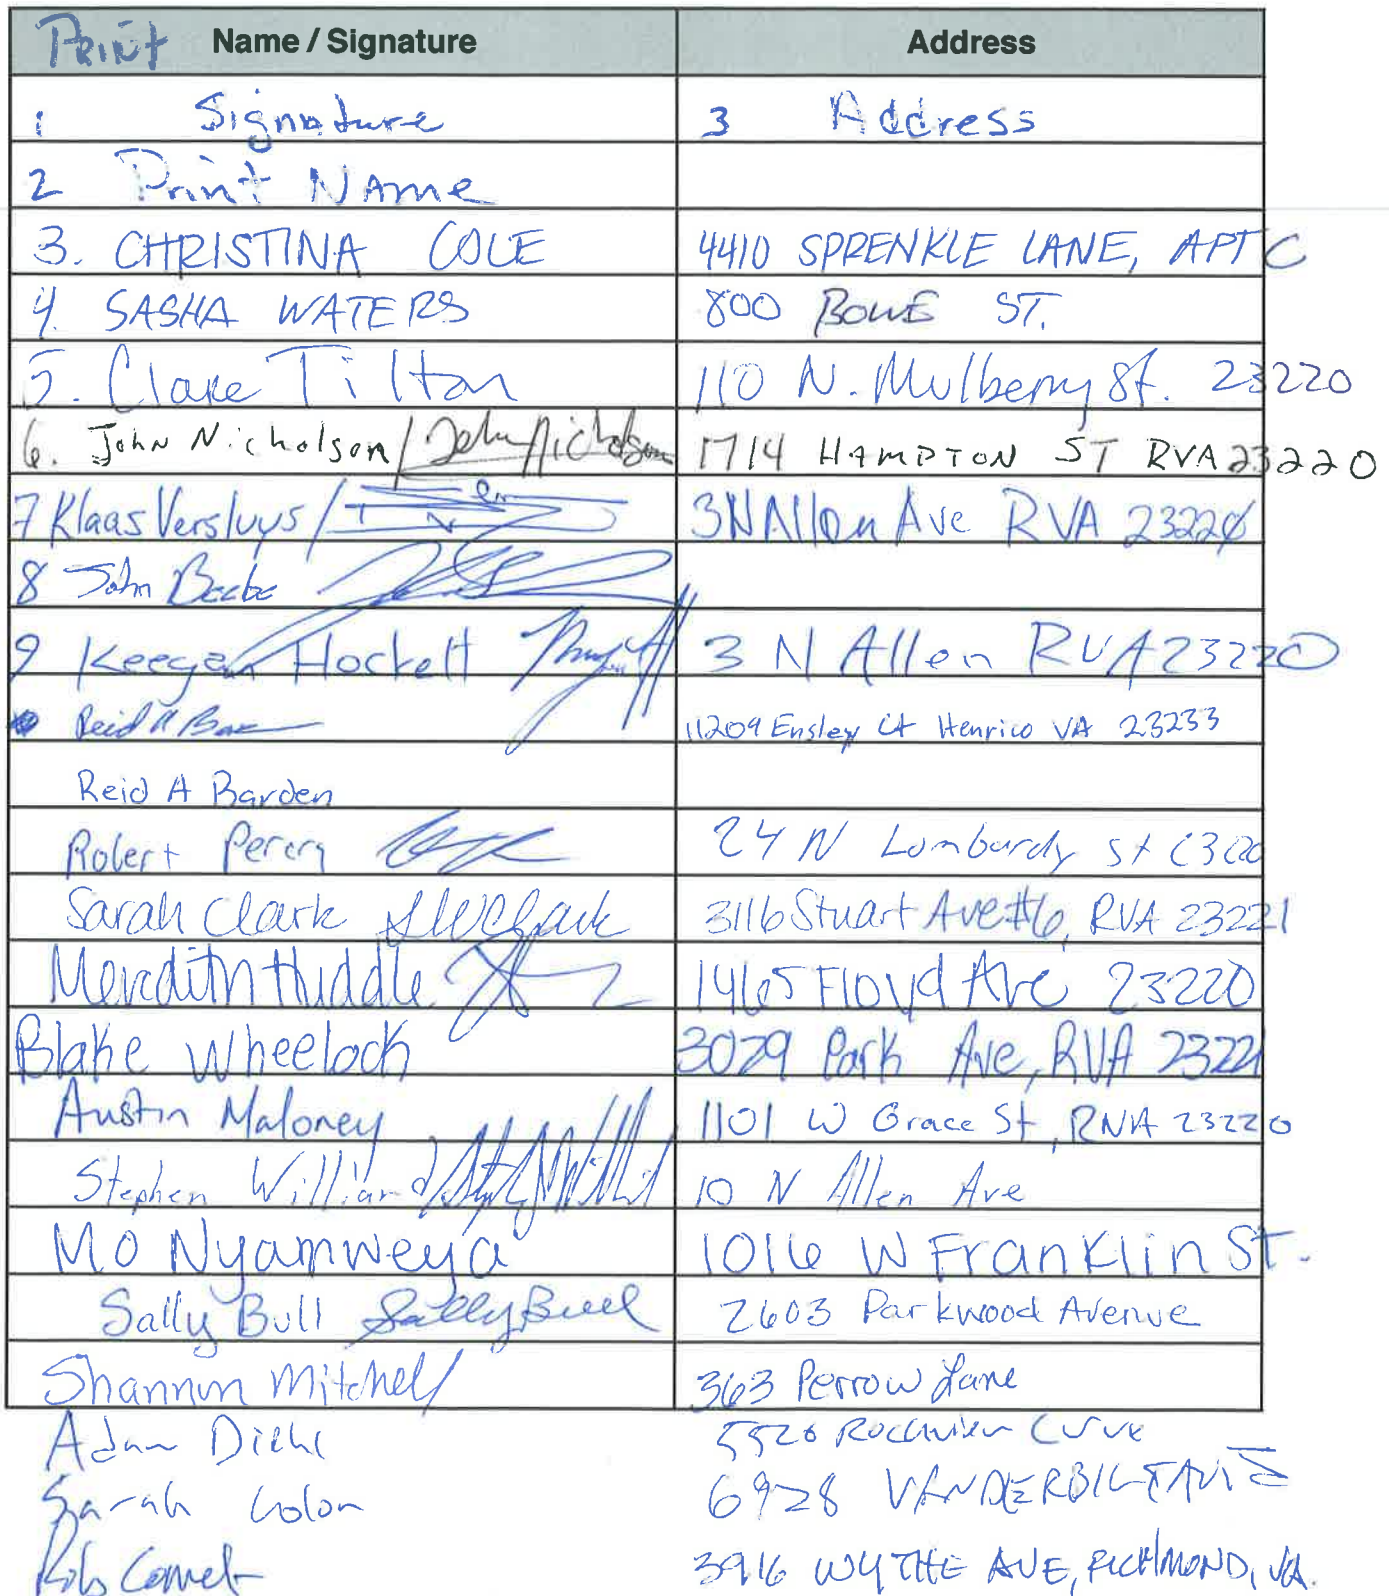 Print Name / Signature Address
1 Signature 3 Address
2 Print Name
3. CHRISTINA COLE 4410 SPRENKLE LANE, APT C
4. SASHA WATERS 800 BOWE ST.
5. Clare Tilton 110 N. Mulberry St. 23220
6. John Nicholson / John Nicholson 1714 HAMPTON ST RVA 23220
7 Klaas Versluys / 3 N Allen Ave RVA 23220
8 John Beebe
9 Keegan Hockett 3 N Allen RVA 23220
Reid A 11209 Ensley Ct Henrico VA 23233
Reid A Barden
Robert 24 N Lombardy St
Sarah Clark SWClark 3116 Stuart Ave #6, RVA 23221
Meredith Huddle 1465 Floyd Ave 23220
Blake Wheelock 3029 Park Ave, RVA 23221
Austin Maloney 1101 W Grace St, RVA 23220
Stephen Williard / 10 N Allen Ave
Mo Nyamweya 1016 W Franklin St.
Sally Bull Sally Bull 2603 Parkwood Avenue
Shannon Mitchell 363 Perrow Lane
Adam Diehl 5520
Sarah 6928 VANDERBILT AVE
Rob 3916 WYTHE AVE, RICHMOND, VA.